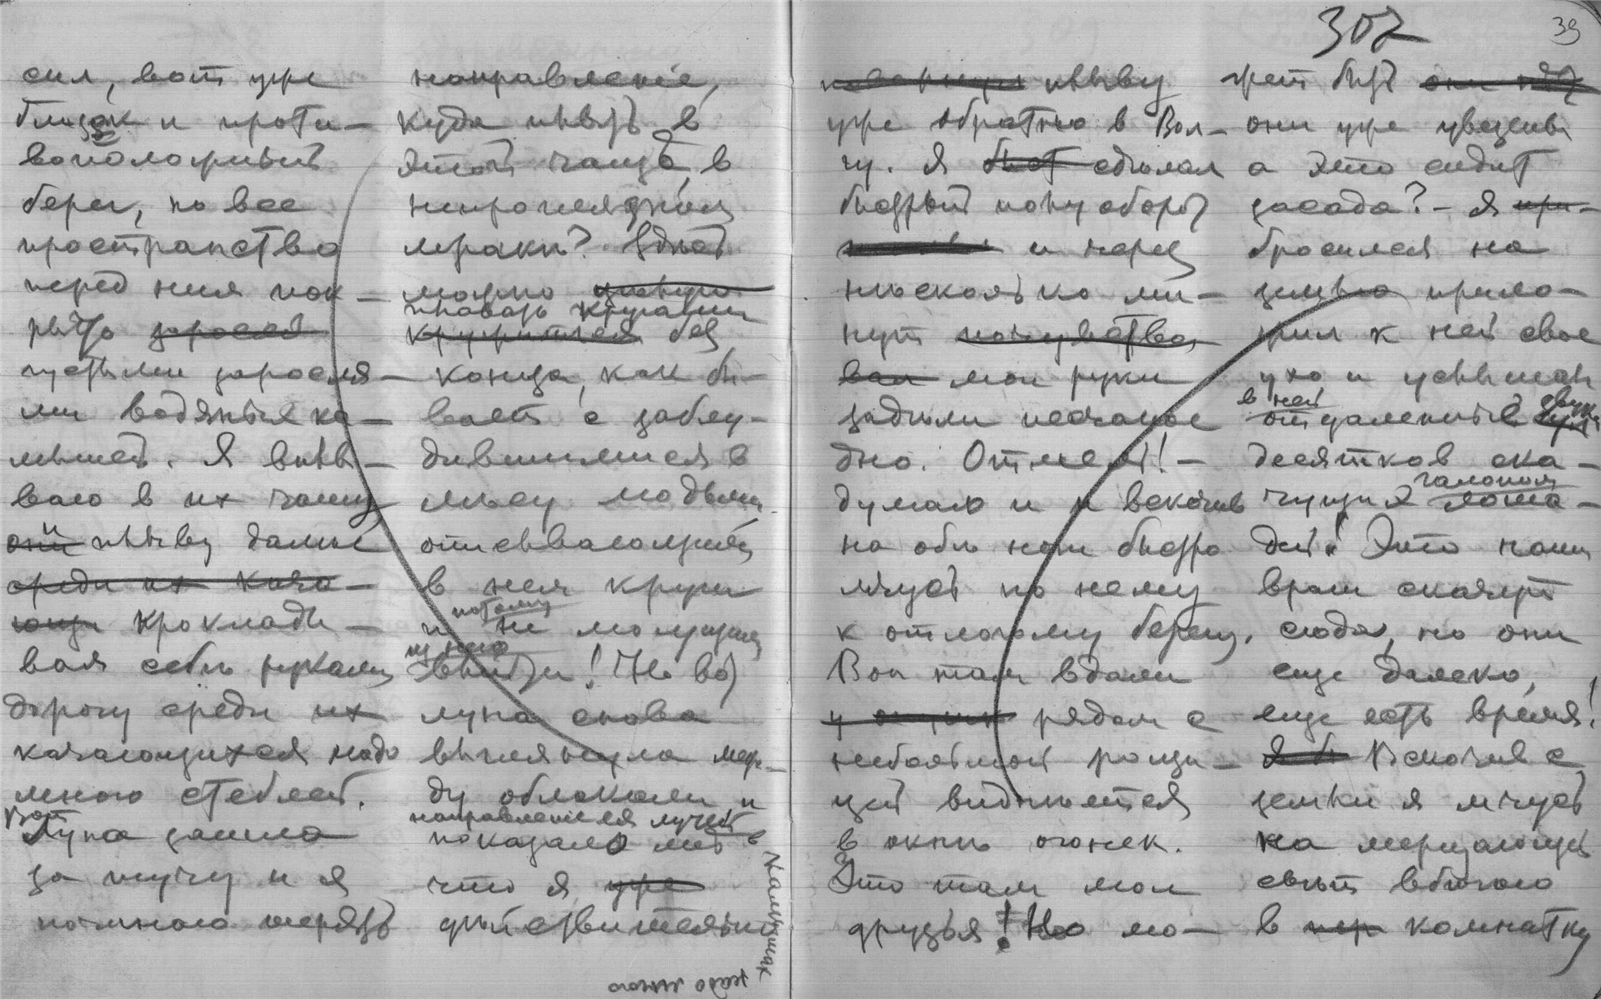 302
39
сил, вот уже
близок и проти-
воположный
берег, но все
пространство
перед ним пок-
рыто зарослей
густыми заросля-
ми водяных ка-
мышей. Я вплы-
ваю в их чащу
и плыву далее
среди их кача-
ющи прокладо-
вая себе руками
дорогу среди их
качающихся надо
мною стеблей.
Вот
Луна зашла
за тучу и я
начинаю терять
направленіе,
куда плыть в
этой чаще, в
непроглядном
мраке? Здесь
можно
плавать кругами
кружиться без
конца, как бы-
вает с заблу-
дившимися в
лесу людьми
описывающими
в нем круги
и потому не могущими
из него
выйти! Но вот
луна снова
выглянула меж-
ду облаками и
направление ея лучей
показало мне в
что я уже
действительно
камышах
надо мною
плыву
уже обратно в Вол-
гу. Я сделал
быстрый полуоборот
и через
несколько ми-
нут почувство
вал мои руки
задели песчаное
дно. Отмель! –
думаю я и вскочив
на обе ноги быстро
мчусь по нему
к отлогому берегу.
Вон там вдали
рядом с
небольшой рощи-
цей виднеется
в окне огонек.
Это там мои
друзья! Но мо-
жет быть они
они уже увезены
а это сидит
засада? – Я при-
бросился на
землю прило-
жил к ней свое
ухо и услышал
в ней
отдаленный звук
десятков ска-
чущих галопом лоша-
дей! Это наши
враги скачут
сюда, но они
еще далеко,
еще есть время!
Вскочив с
земли я мчусь
на мерцающий
свет вбегаю
в комнатку